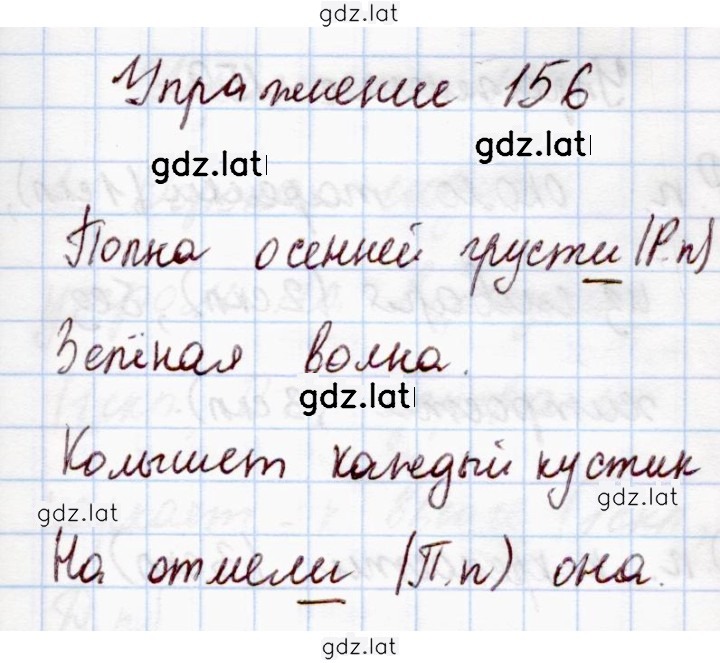 gdz.lat
Упражнение 156
gdz.lat gdz.lat
Полна осенней грусти (Р.п)
Зелёная волна.
gdz.lat
Колышет каждый кустик
gdz.lat gdz.lat
На отмели (П.п) она.
gdz.lat